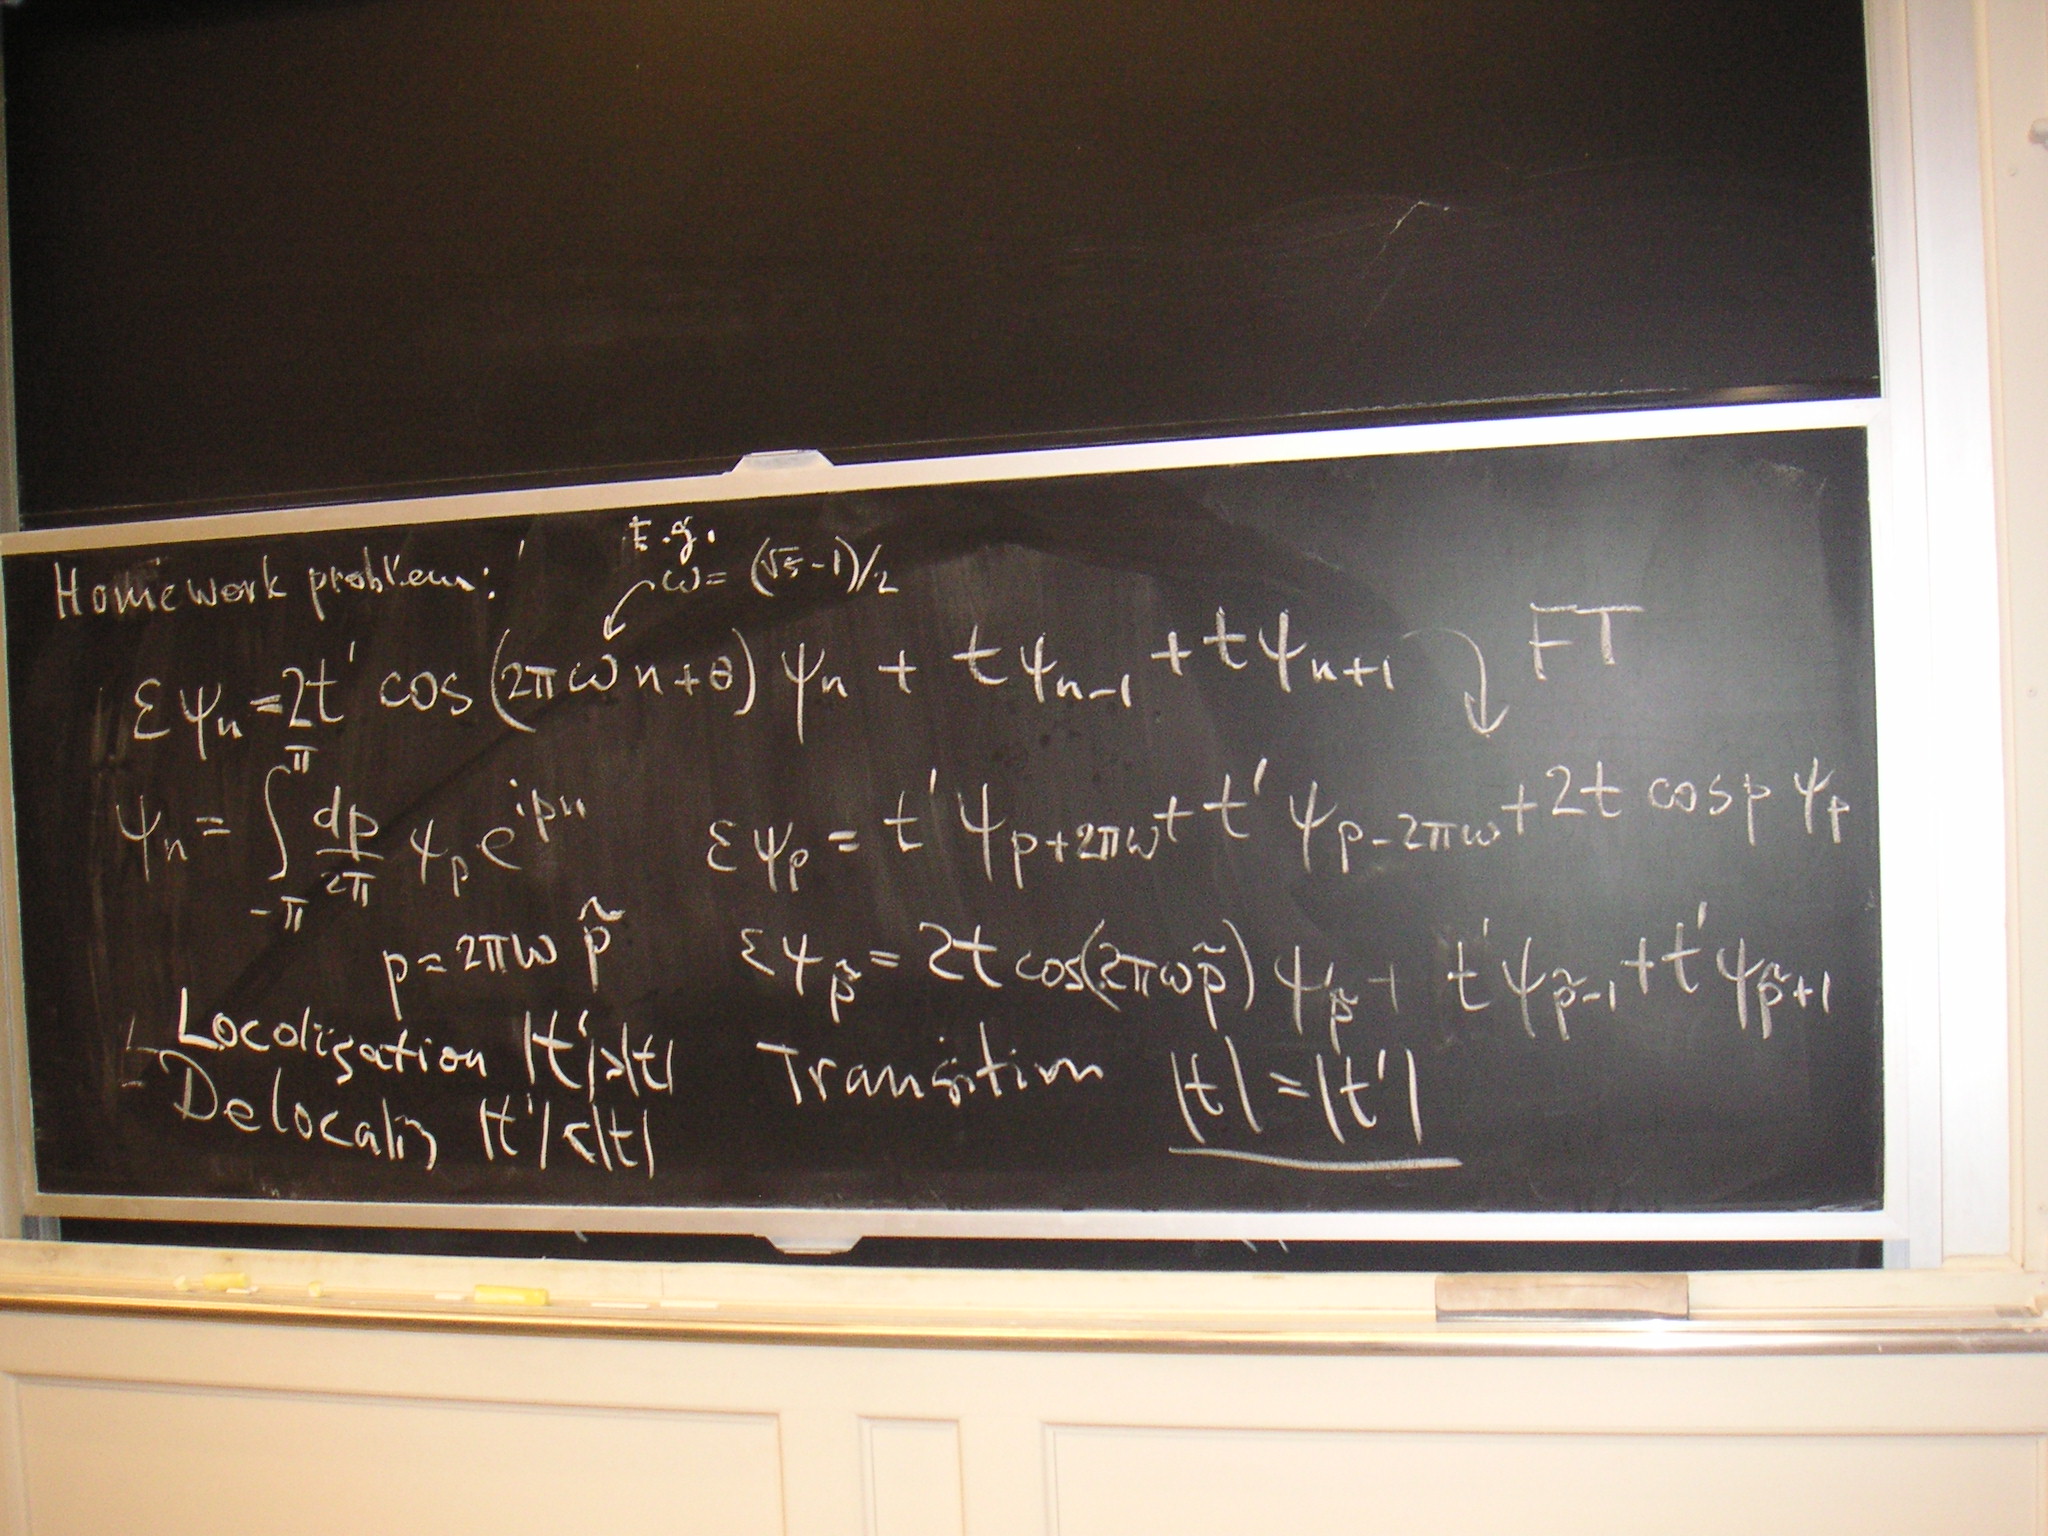 Homework problem:
E.g.
ω = (√5 - 1)/2
εψ_n = 2t' cos(2πωn + θ) ψ_n + tψ_{n-1} + tψ_{n+1} FT
ψ_n = ∫_{-π}^{π} dp/2π ψ_p e^{ipn} εψ_p = t'ψ_{p+2πω} + t'ψ_{p-2πω} + 2t cos p ψ_p
p = 2πω p̃ εψ_p̃ = 2t cos(2πωp̃) ψ_p̃ + t'ψ_{p̃-1} + t'ψ_{p̃+1}
Localization |t'|>|t| Transition |t| = |t'|
Delocaliz |t'|<|t|